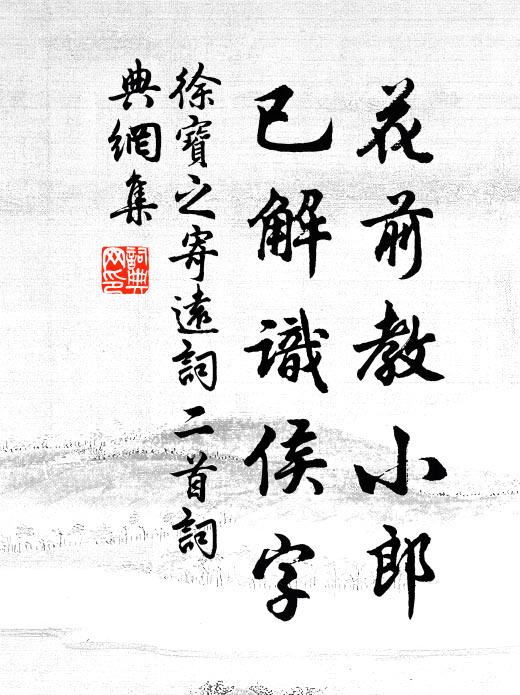 花前教小郎
已解識侯字
徐寶之寄遠詞二首詞
典網集
詞典
网印